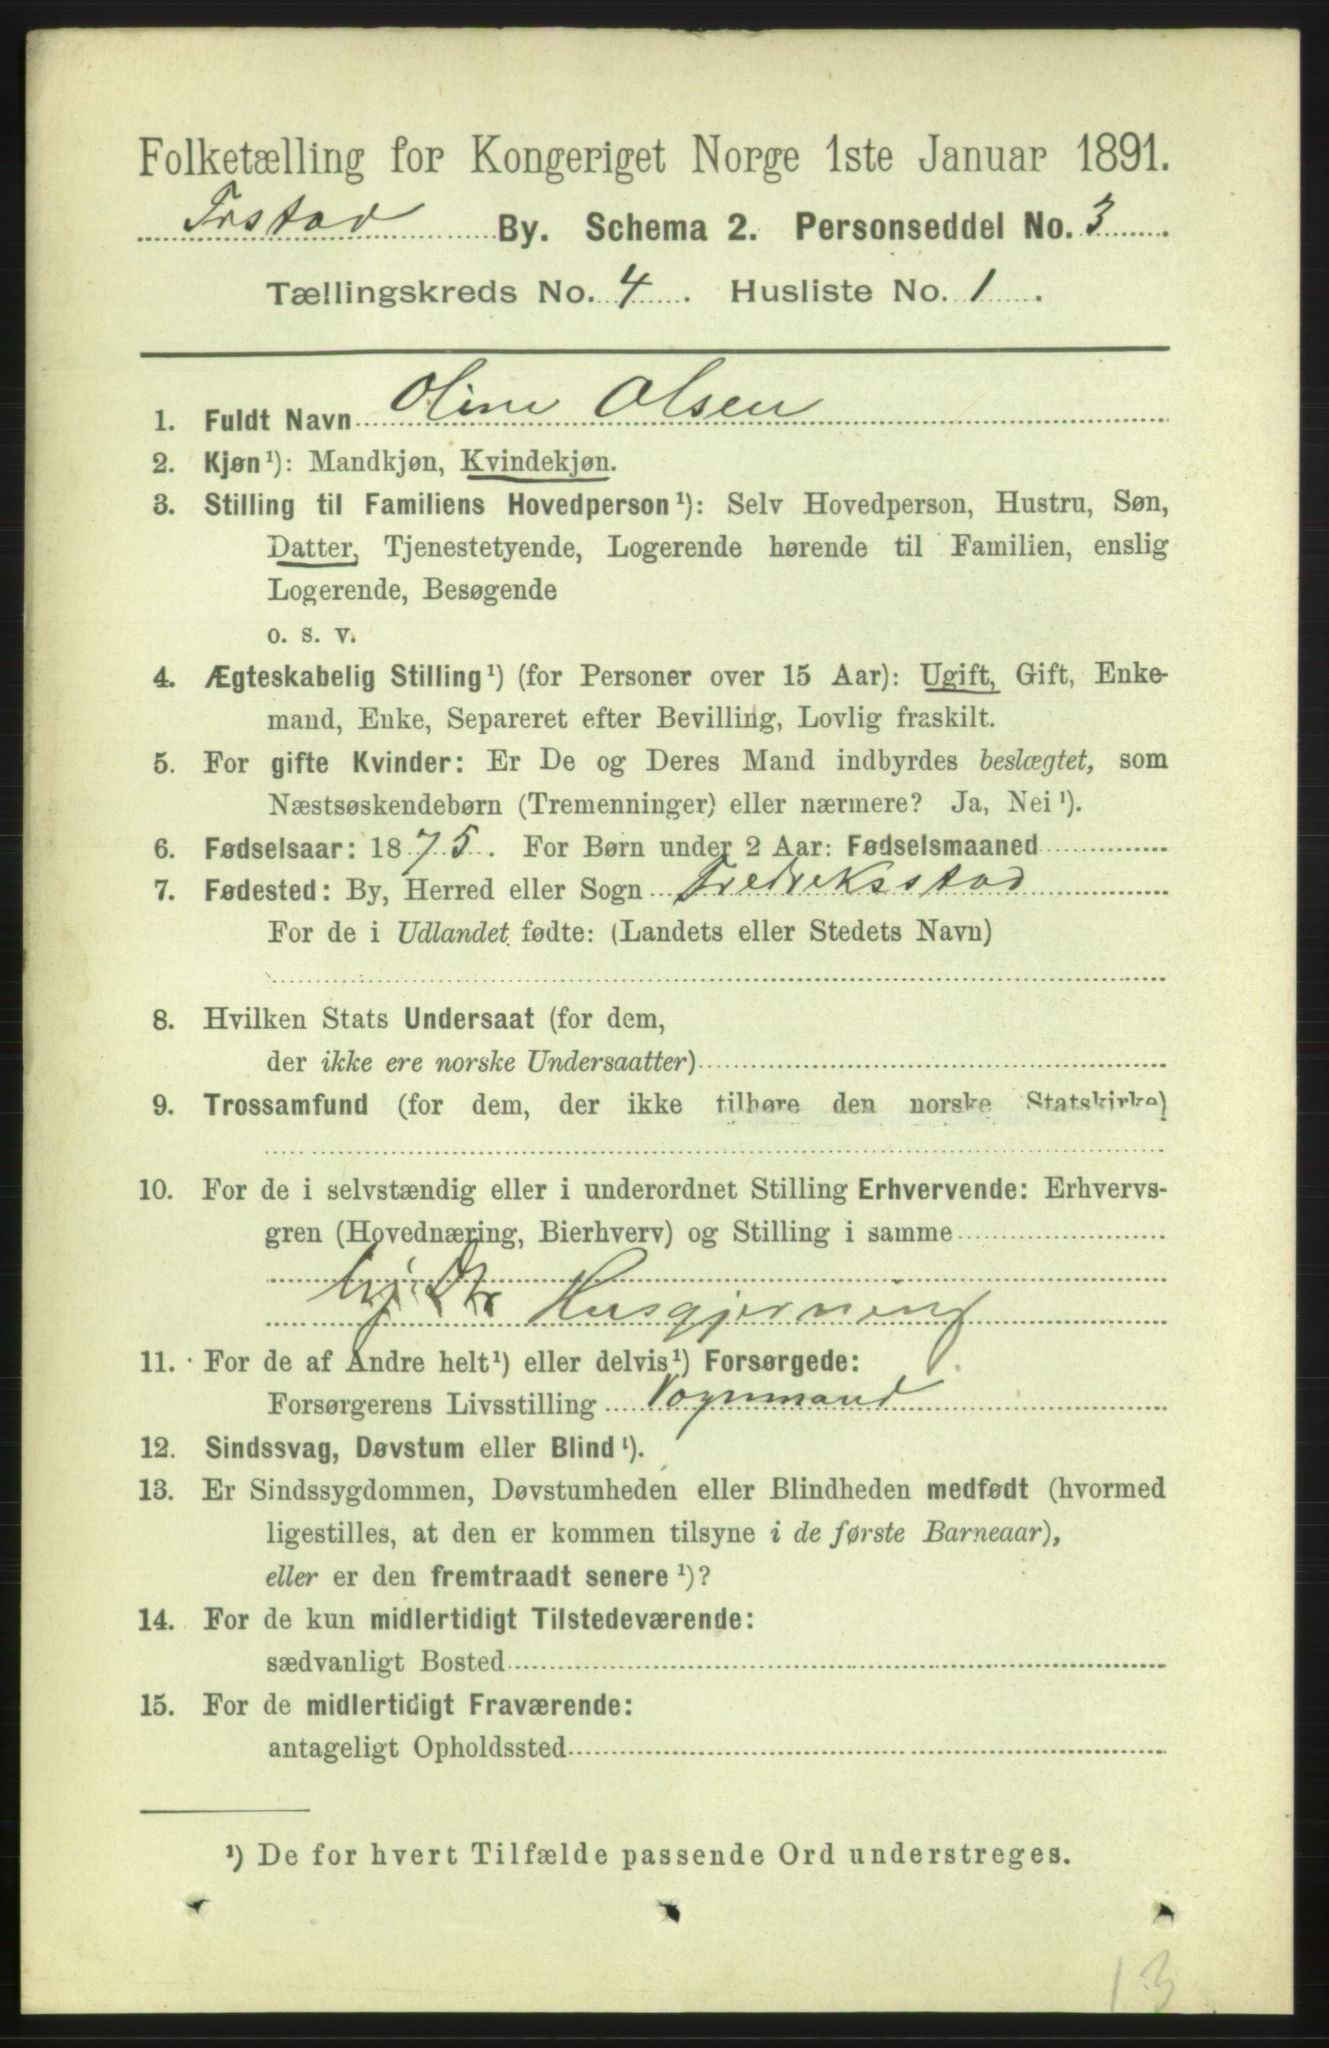 Folketælling for Kongeriget Norge 1ste Januar 1891.
Frstad By. Schema 2. Personseddel No. 3
Tællingskreds No. 4. Husliste No. 1.
1. Fuldt Navn Oline Olsen
2. Kjøn¹): Mandkjøn, Kvindekjøn.
3. Stilling til Familiens Hovedperson¹): Selv Hovedperson, Hustru, Søn,
Datter, Tjenestetyende, Logerende hørende til Familien, enslig
Logerende, Besøgende
o. s. v.
4. Ægteskabelig Stilling¹) (for Personer over 15 Aar): Ugift, Gift, Enke-
mand, Enke, Separeret efter Bevilling, Lovlig fraskilt.
5. For gifte Kvinder: Er De og Deres Mand indbyrdes beslægtet, som
Næstsøskendebørn (Tremenninger) eller nærmere? Ja, Nei¹).
6. Fødselsaar: 1875. For Børn under 2 Aar: Fødselsmaaned
7. Fødested: By, Herred eller Sogn Fredriksstad
For de i Udlandet fødte: (Landets eller Stedets Navn)
8. Hvilken Stats Undersaat (for dem,
der ikke ere norske Undersaatter)
9. Trossamfund (for dem, der ikke tilhøre den norske Statskirke)
10. For de i selvstændig eller i underordnet Stilling Erhvervende: Erhvervs-
gren (Hovednæring, Bierhverv) og Stilling i samme
Husgjerning
11. For de af Andre helt¹) eller delvis¹) Forsørgede:
Forsørgerens Livsstilling Vognmand
12. Sindssvag, Døvstum eller Blind¹).
13. Er Sindssygdommen, Døvstumheden eller Blindheden medfødt (hvormed
ligestilles, at den er kommen tilsyne i de første Barneaar),
eller er den fremtraadt senere¹)?
14. For de kun midlertidigt Tilstedeværende:
sædvanligt Bosted
15. For de midlertidigt Fraværende:
antageligt Opholdssted
¹) De for hvert Tilfælde passende Ord understreges.
13